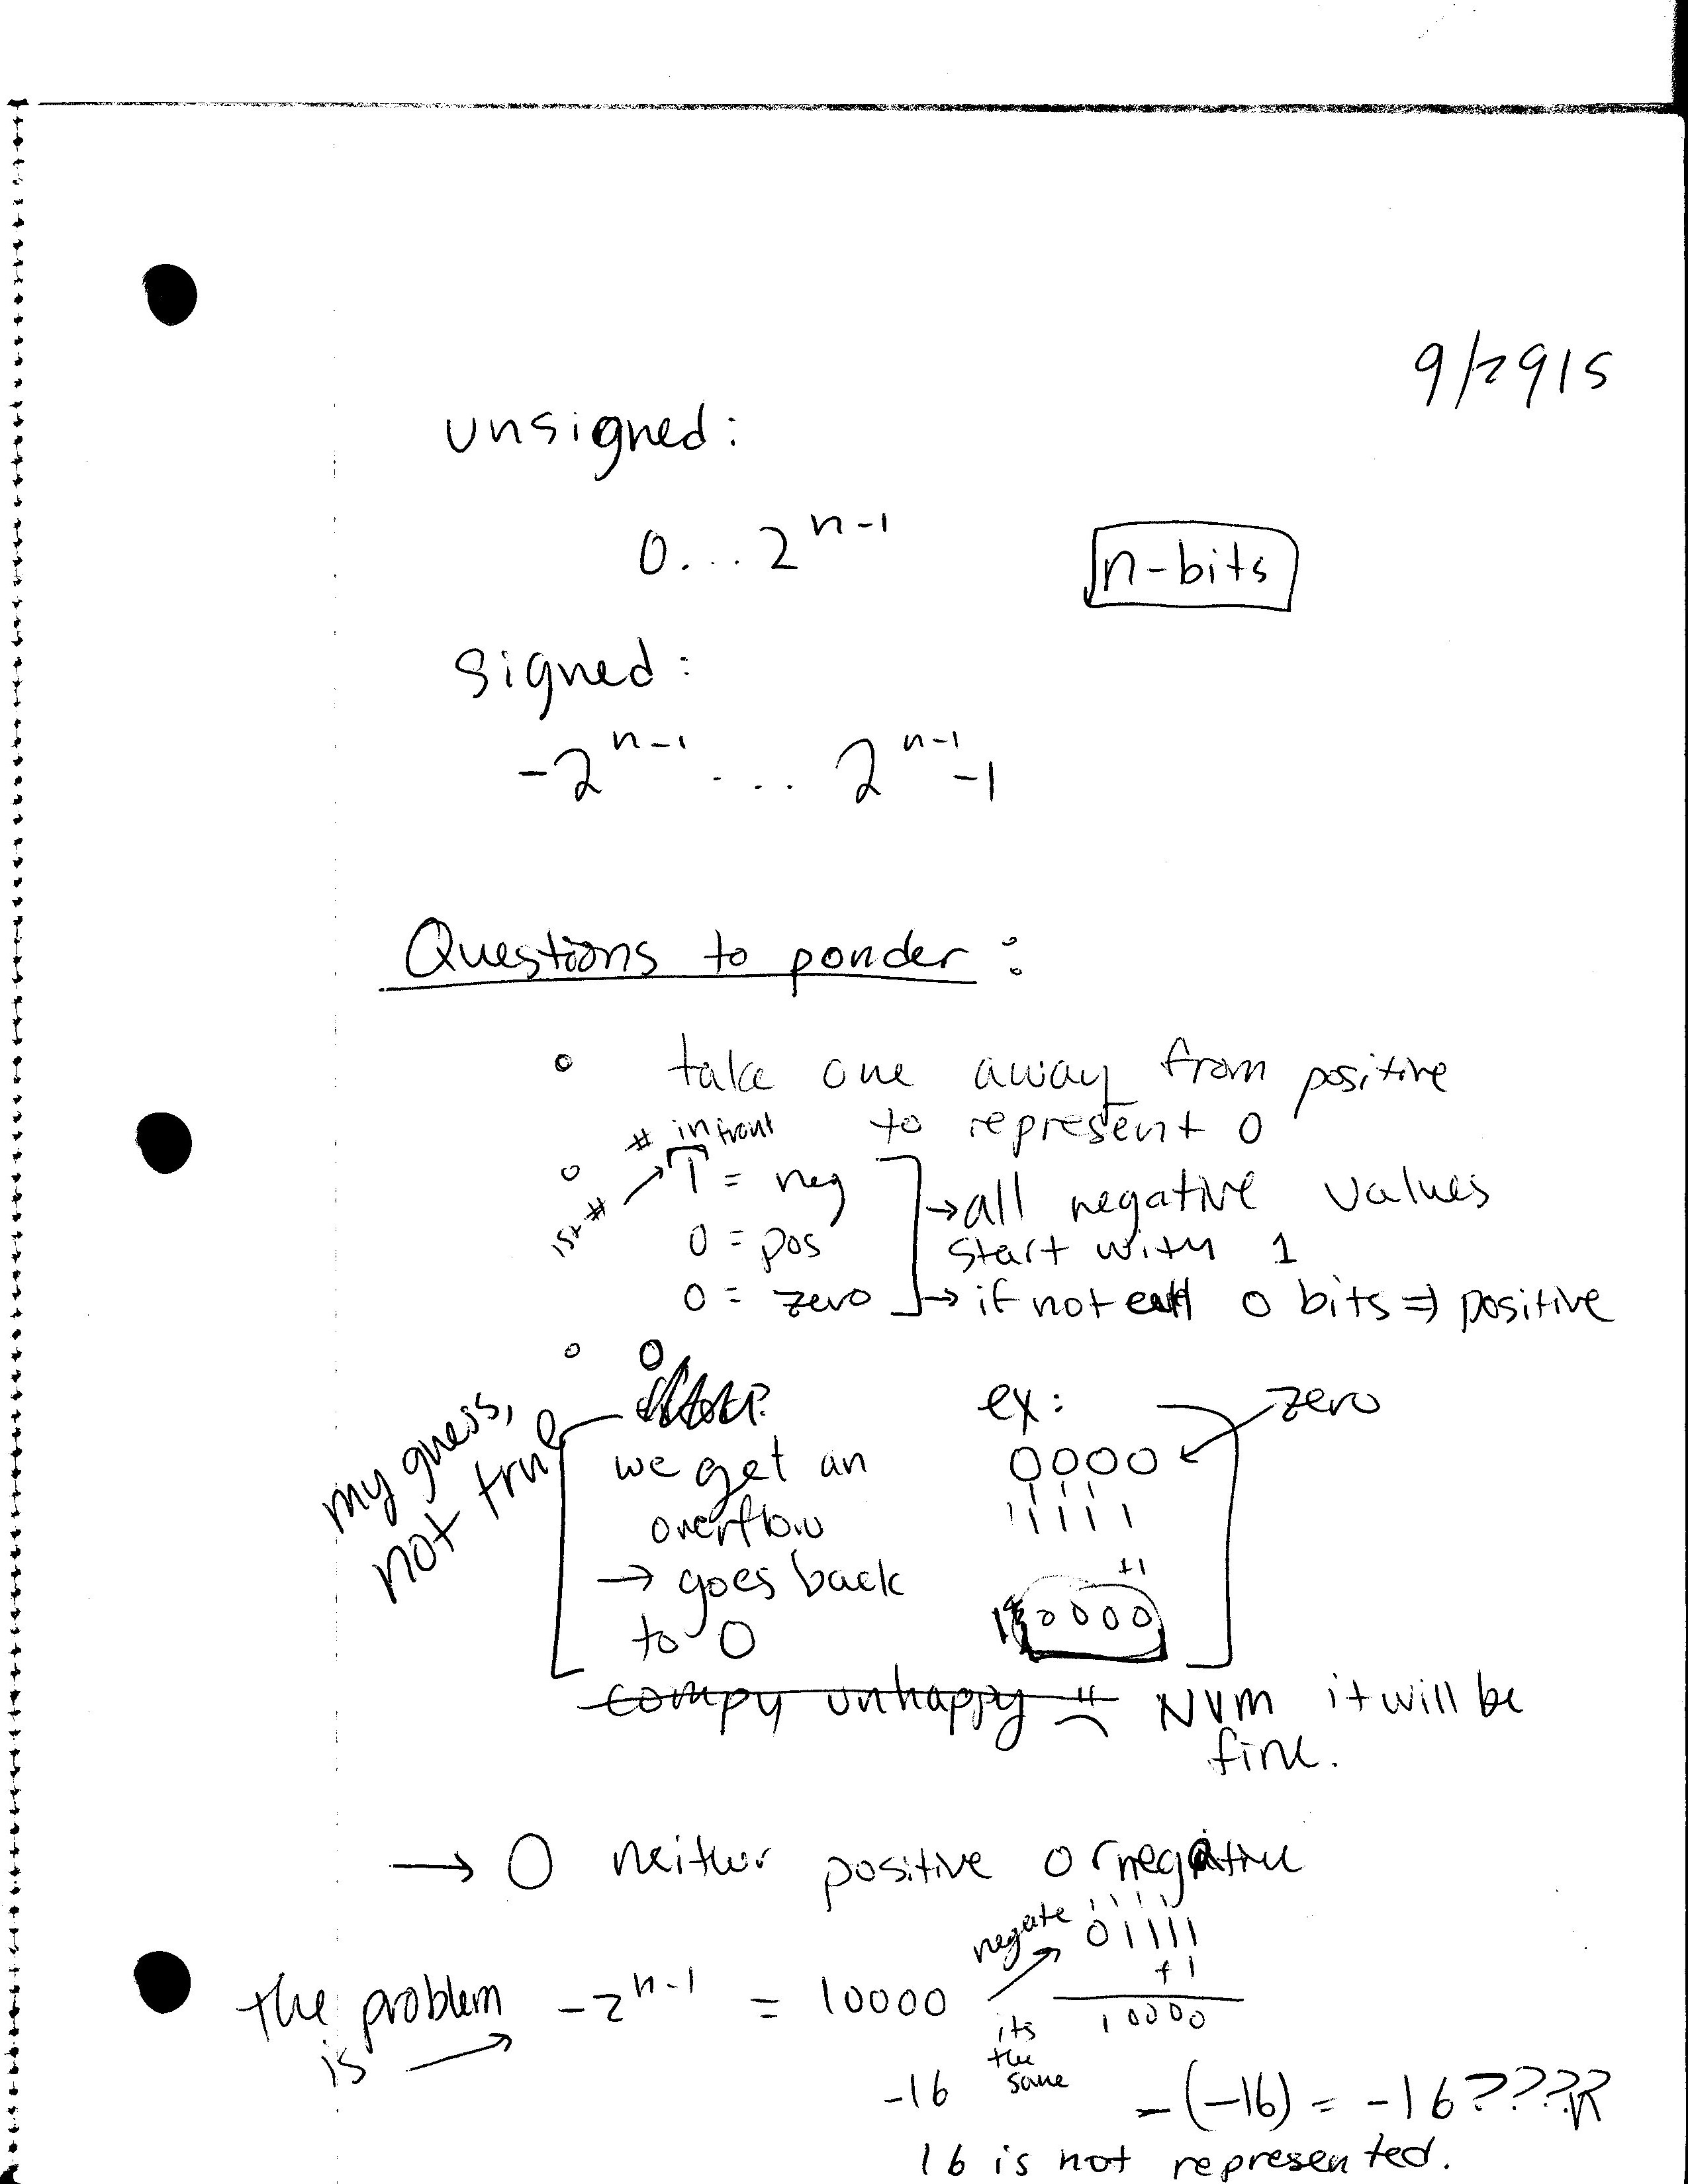 9/2915
unsigned:
0...2^{n-1}
n-bits
signed:
-2^{n-1} ... 2^{n-1}-1
Questions to ponder:
take one away from positive
to represent 0
# in front
1st #
1 = neg
0 = pos
0 = zero
→ all negative values
start with 1
→ if not all 0 bits ⇒ positive
0
my guess,
not true
we get an
overflow
→ goes back
to 0
ex:
zero
0000
1111
+1
10000
compy unhappy
NVM it will be
fine.
→ 0 neither positive or negative
the problem
is →
-2^{n-1} = 10000
negate
1111
01111
+1
10000
its
the
same
-16
-(-16) = -16????
16 is not represented.